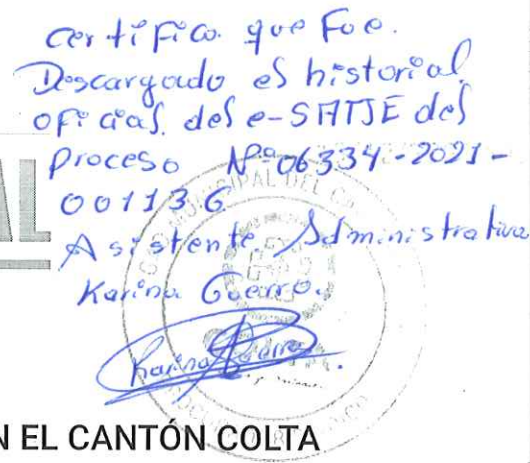 Certifico que Foe.
Descargado el historial
oficial del e-SATJE del
Proceso Nº 06334-2021-
00113G
Asistente Administrativa
Karina Guerro.
AL
MUNICIPAL DEL C
N EL CANTÓN COLTA